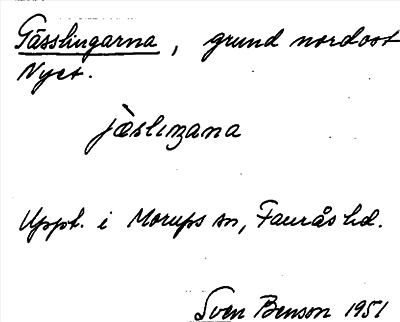 Gässlingarna, grund nordost
Nyet.
jæslıŋana
Uppt. i Morups sn, Faurås hd.
Sven Benson 1951